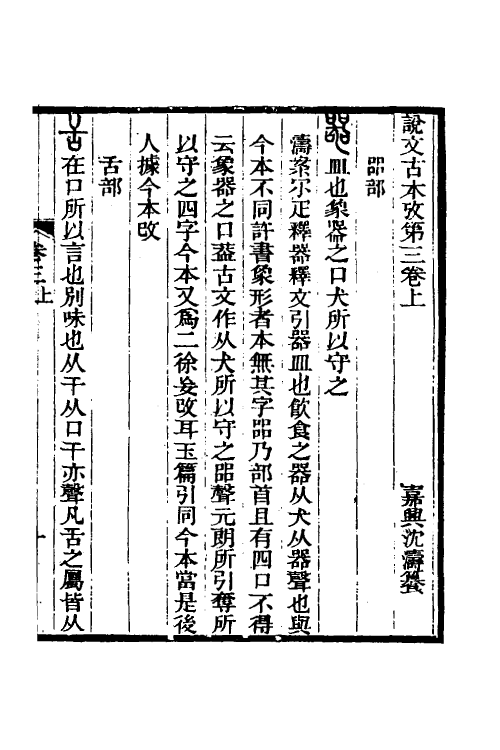 說文古本攷第三卷上
嘉興沈濤纂
㗊部
器皿也象器之口犬所以守之
濤案尔疋釋器釋文引器皿也飮食之器从犬从器聲也與
今本不同許書象形者本無其字㗊乃部首且有四口不得
云象器之口葢古文作从犬所以守之㗊聲元朗所引奪所
以守之四字今本又爲二徐妄改耳玉篇引同今本當是後
人據今本改
舌部
舌在口所以言也別味也从干从口干亦聲凡舌之屬皆从
卷三上
一